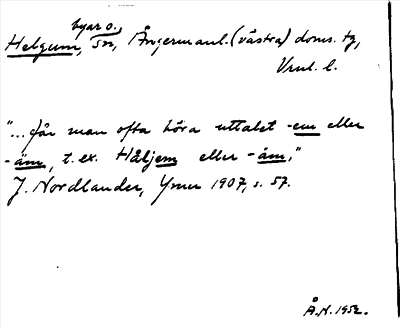 byar o.
Helgum, sn, Ångermanl. (västra) doms. tg,
Vrnl. l.
"... får man ofta höra uttalet -em eller
-äm, t. ex. Häljem eller -äm."
J. Nordlander, Ymer 1907, s. 57.
Å.N. 1952.